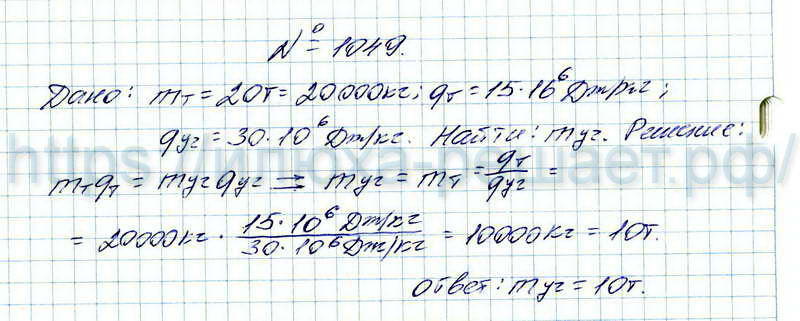 № 1049.
Дано: mт = 20т = 20000кг; qт = 15·10⁶ Дж/кг;
qуг = 30·10⁶ Дж/кг. Найти: mуг. Решение:
https://илюха-решает.рф/
mтqт = mугqуг ⇒ mуг = mт = qт/qуг =
= 20000кг · 15·10⁶ Дж/кг / 30·10⁶ Дж/кг = 10000кг = 10т.
Ответ: mуг = 10т.